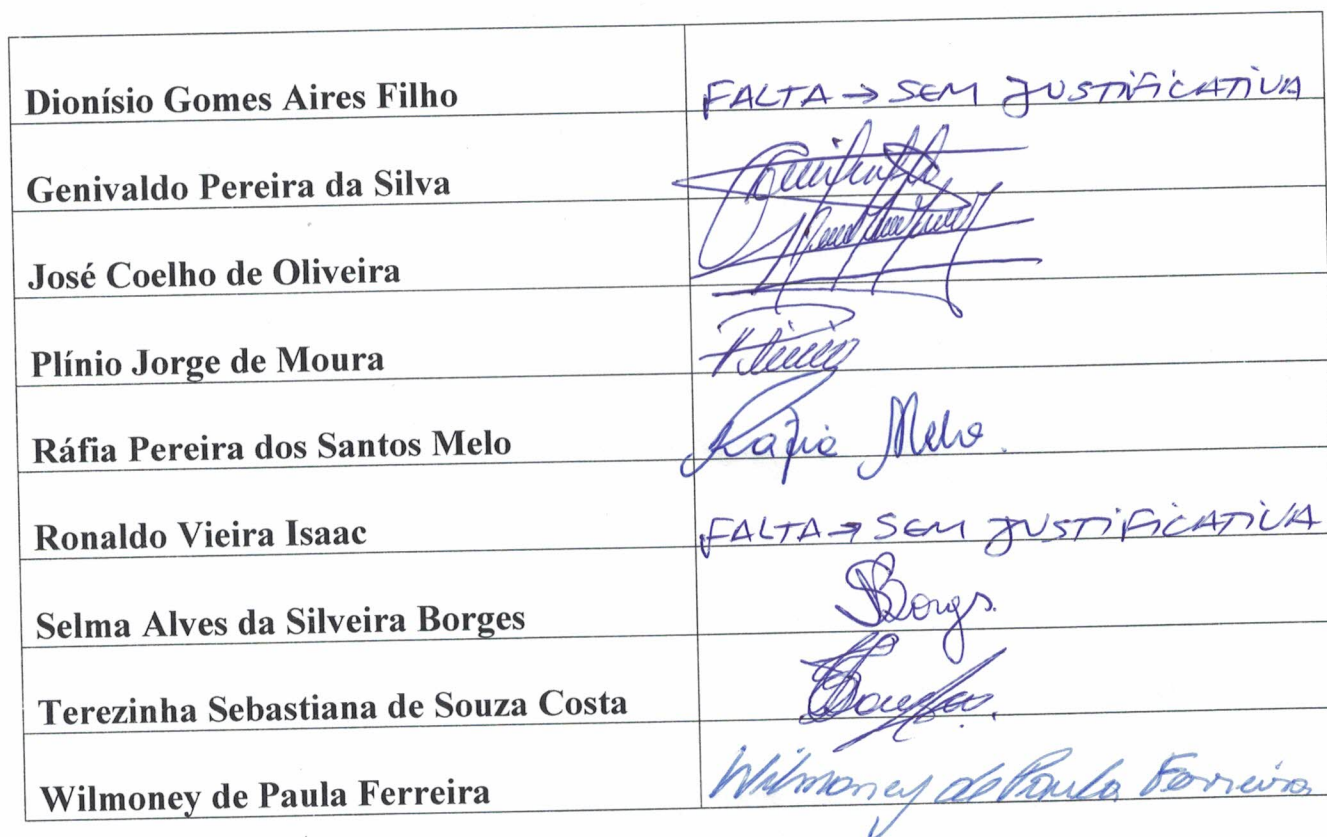 Dionísio Gomes Aires Filho FALTA → SEM JUSTIFICATIVA
Genivaldo Pereira da Silva
José Coelho de Oliveira
Plínio Jorge de Moura Plínio
Ráfia Pereira dos Santos Melo Ráfia Melo
Ronaldo Vieira Isaac FALTA → SEM JUSTIFICATIVA
Selma Alves da Silveira Borges SBorges
Terezinha Sebastiana de Souza Costa
Wilmoney de Paula Ferreira Wilmoney de Paula Ferreira